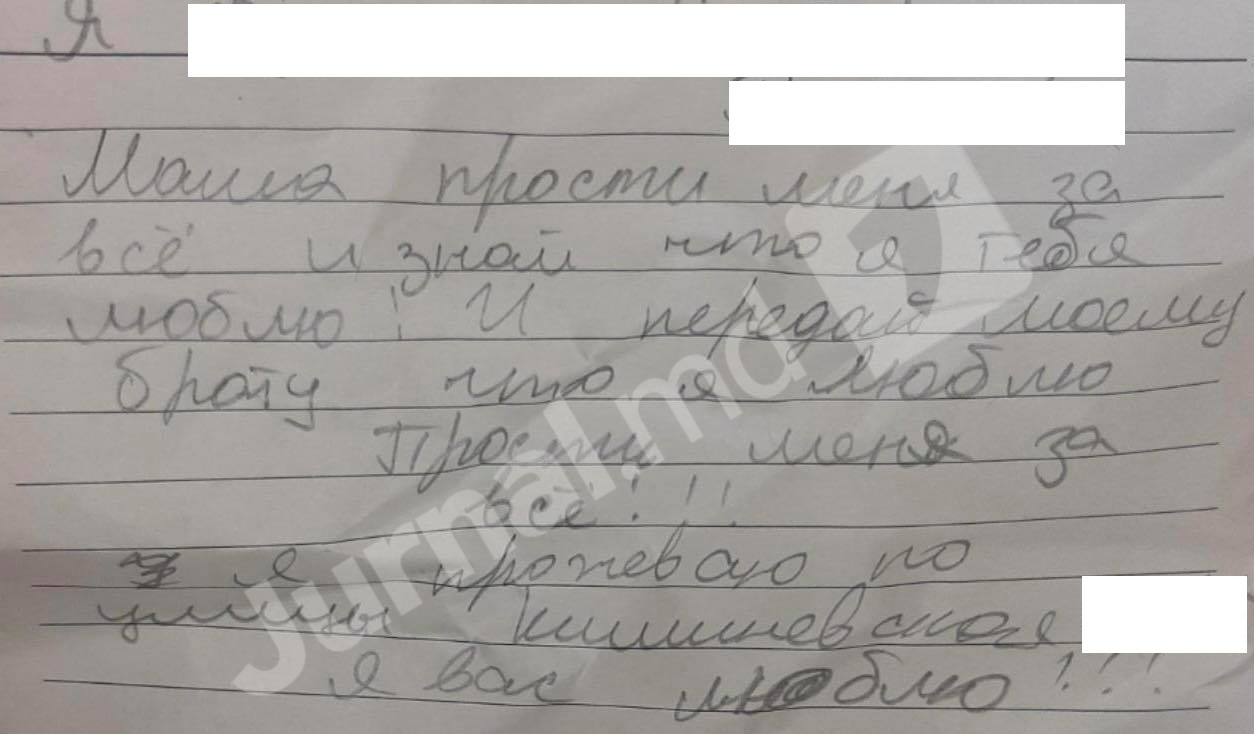 Я
Маша прости меня за
всё и знай что я тебя
люблю! И передай моему
брату что я люблю
Прости меня за
всё!!!
я прожеваю по
улицы Кишиневская
я вас люблю!!!
Jurnal.md